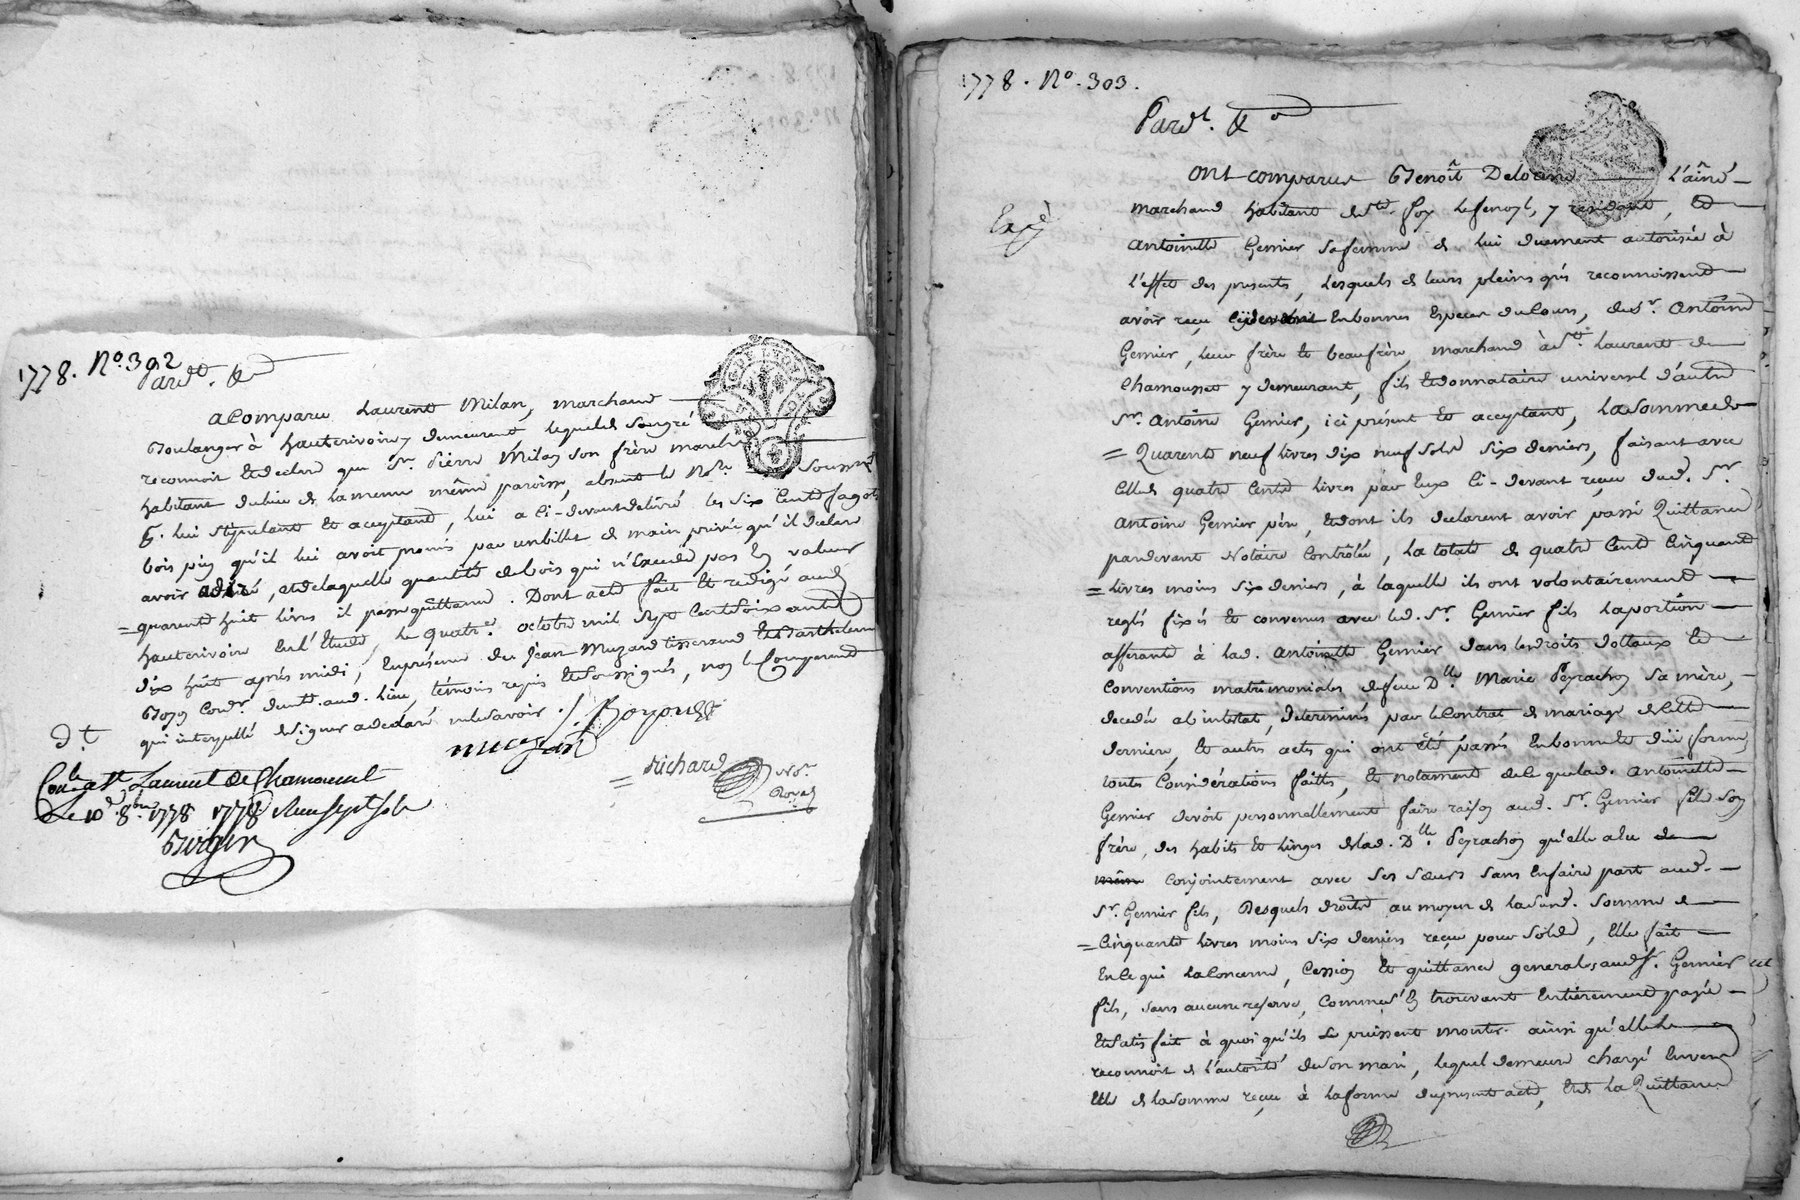 1778. No. 302
Pardt. &
a Comparu Laurent Milan, marchand
Boulanger à hauterivoire y demeurent lequel de son gré
reconnoit et declare que Sr. Pierre Milan son frère march
habitant du lieu de la meme même paroisse, absent le Nore. soussigné
lui stipulant et acceptant, lui a ci-devant delivré les six Cents fagots
bois pin qu'il lui avoit promis par un billet de main privée qu'il declare
avoir adiré, et de laquelle quantité de bois qui n'Excede pas En valeur
= quarente huit livres il passe quittance. Dont acte fait et redigé aud.
hauterivoire En l'Etude, le quatre. octobre mil sept Cent soixante
dix huit après midi, En présence de Jean Muzard tisserand et Barthelemi
Boyon Cordr. demt. aud. lieu, témoins requis et soussignés, non le Comparant
qui interpellé de signer a declaré ne le savoir. /. Boyon
d.t
muzard
= Richard Nore.
Royal
Conle. a St. Laurent de Chamousset
Le 10e. 8bre. 1778 1778. Reçu sept sols
1778. No. 303.
Pardt. &
Ont comparus Benoît Delorme l'aîné
marchand habitant de Ste. foy l'argentière, y residant, Et
Expé
antoinette Gernier sa femme de lui duement autorisée à
l'effet des presents, Lesquels de leurs pleins grés reconnoissent
avoir reçu En bonnes Especes du Cours, du Sr. antoine
Gernier, leur frère et beaufrère, marchand à St. Laurent de
Chamousset y demeurant, fils Et donnataire universel d'autre
Sr. antoine Gernier, ici présent Et acceptant, La somme de
= Quarente neuf livres dix neuf sols six deniers, faisant avec
Celle de quatre Cents livres par Eux Ci-devant reçue dud. Sr.
antoine Gernier père, Et dont ils declarent avoir passé Quittance
pardevant Notaire Contrôlée, La totale de quatre Cents Cinquante
= livres moins six deniers, à laquelle ils ont volontairement
reglé fixés Et convenus avec led. Sr. Gernier fils La portion
afferante à lad. antoinette Gernier dans les droits dottaux Et
Conventions matrimoniales de feue Dlle. Marie Peyrachon Sa mère,
decedée ab intestat, determinés par le Contrat de mariage de Cette
derniere, Et autres actes qui ont été passés En bonne Et düe forme,
toutes Considérations faites, Et notament de Ce que lad. antoinette
Gernier devoit personnellement faire raison aud. Sr. Gernier fils Son
frère, des habits Et linges de lad. Dlle. Peyrachon qu'elle a eu
même Conjointement avec ses sœurs sans En faire part aud.
Sr. Gernier fils, Desquels droits au moyen de la susd. somme de
= Cinquante livres moins six deniers reçue pour solde, Elle fait
En Ce qui la Concerne, Cession Et quittance generale aud. Sr. Gernier
fils, sans aucune reserve, Comme s'En trouvant Entièrement payée
Et satisfait à quoi qu'ils se puissent monter. ainsi qu'elle le
reconnoit de l'autorité de son mari, lequel demeure chargé Envers
Elle de la somme reçue à la forme du present acte, Et de la Quittance